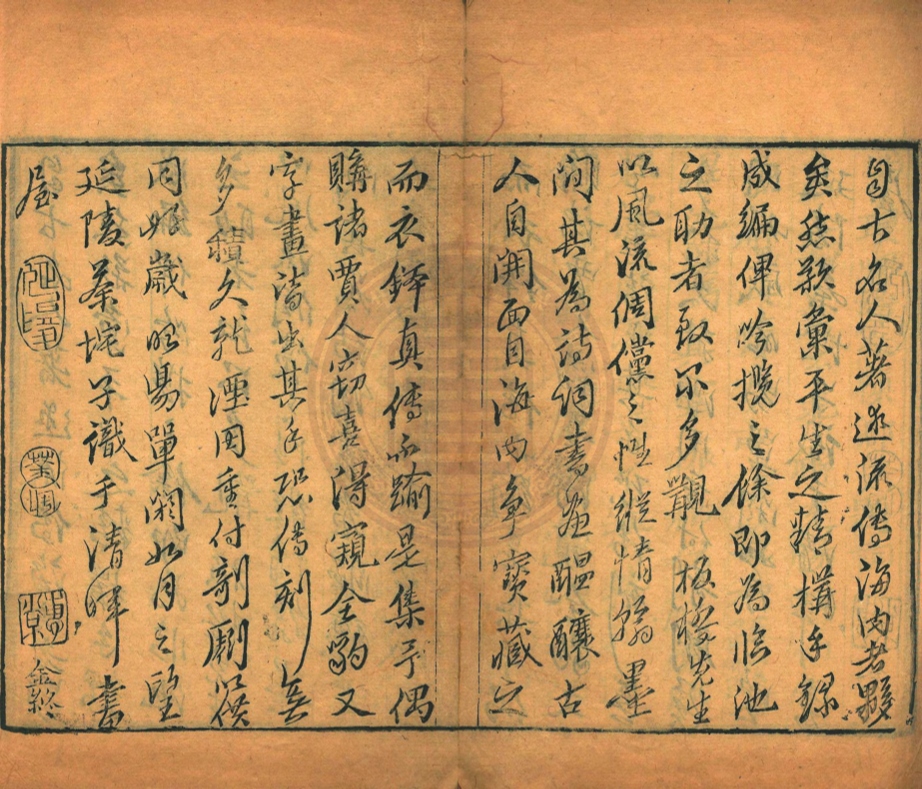 自古名人著述流傳海內者夥
矣然欲彙平生之精構手錄
成編俾吟攬之餘即為臨池
之助者致不多覯板橋先生
以風流倜儻之性縱情翰墨
間其為詩詞書畫醞釀古
人自開面目海內爭寶藏之
而衣鉢真傳不踰是集予偶
購諸賈人竊喜得窺全豹又
字畫清出其手恐傳刻無
多積久就湮因重付剞劂以供
同好歲昭陽單閼如月之望
延陵茶垞子識于清暉書
屋